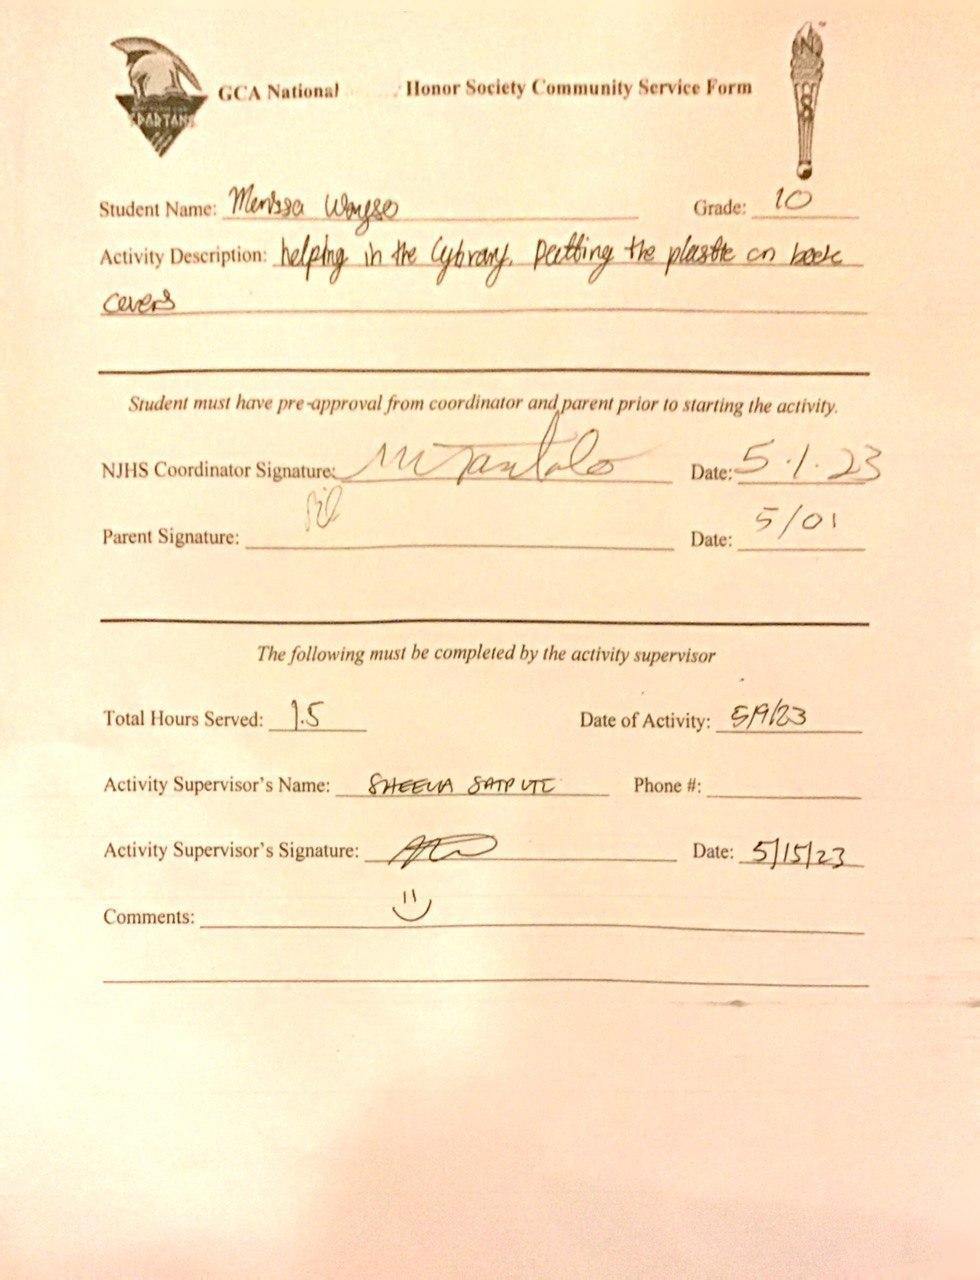 GCA National Honor Society Community Service Form
SPARTANS
N
S
Student Name: Grade: 10
Activity Description: helping in the Cybrary, putting the plastic on book
covers
Student must have pre-approval from coordinator and parent prior to starting the activity.
NJHS Coordinator Signature: Date: 5.1.23
Parent Signature: Date: 5/01
The following must be completed by the activity supervisor
Total Hours Served: 1.5 Date of Activity: 5/9/23
Activity Supervisor's Name: SHEENA SATPUTE Phone #:
Activity Supervisor's Signature: Date: 5/15/23
Comments: